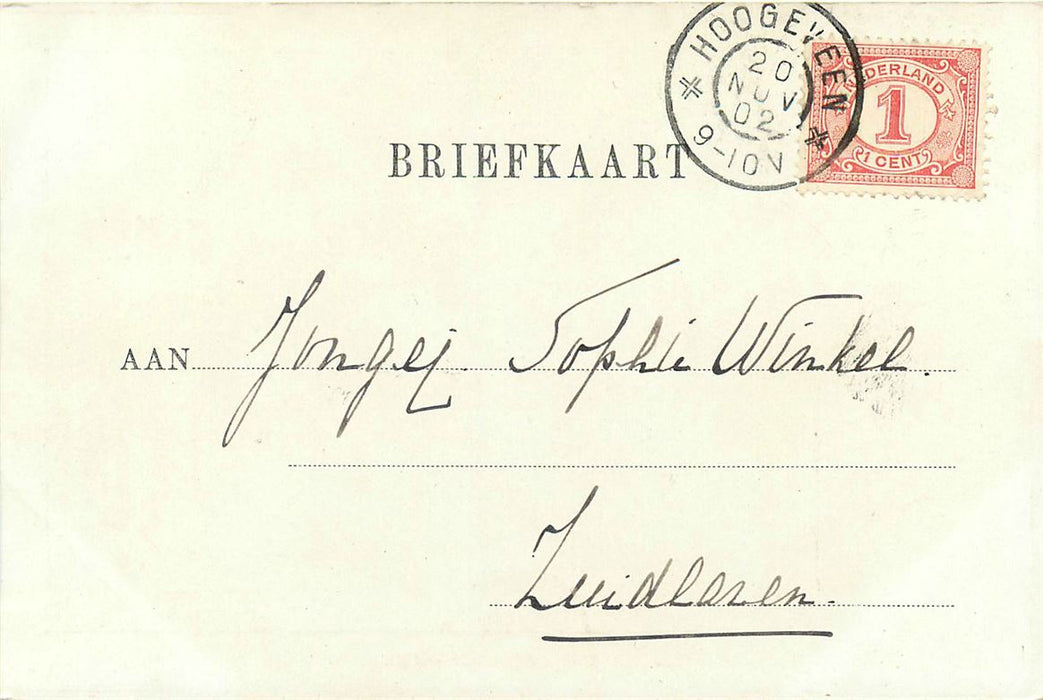 HOOGEVEEN
20
NOV
02
9-10V
NEDERLAND
1
1 CENT
BRIEFKAART
AAN Jongej. Sophie Winkel.
Zuidlaren.